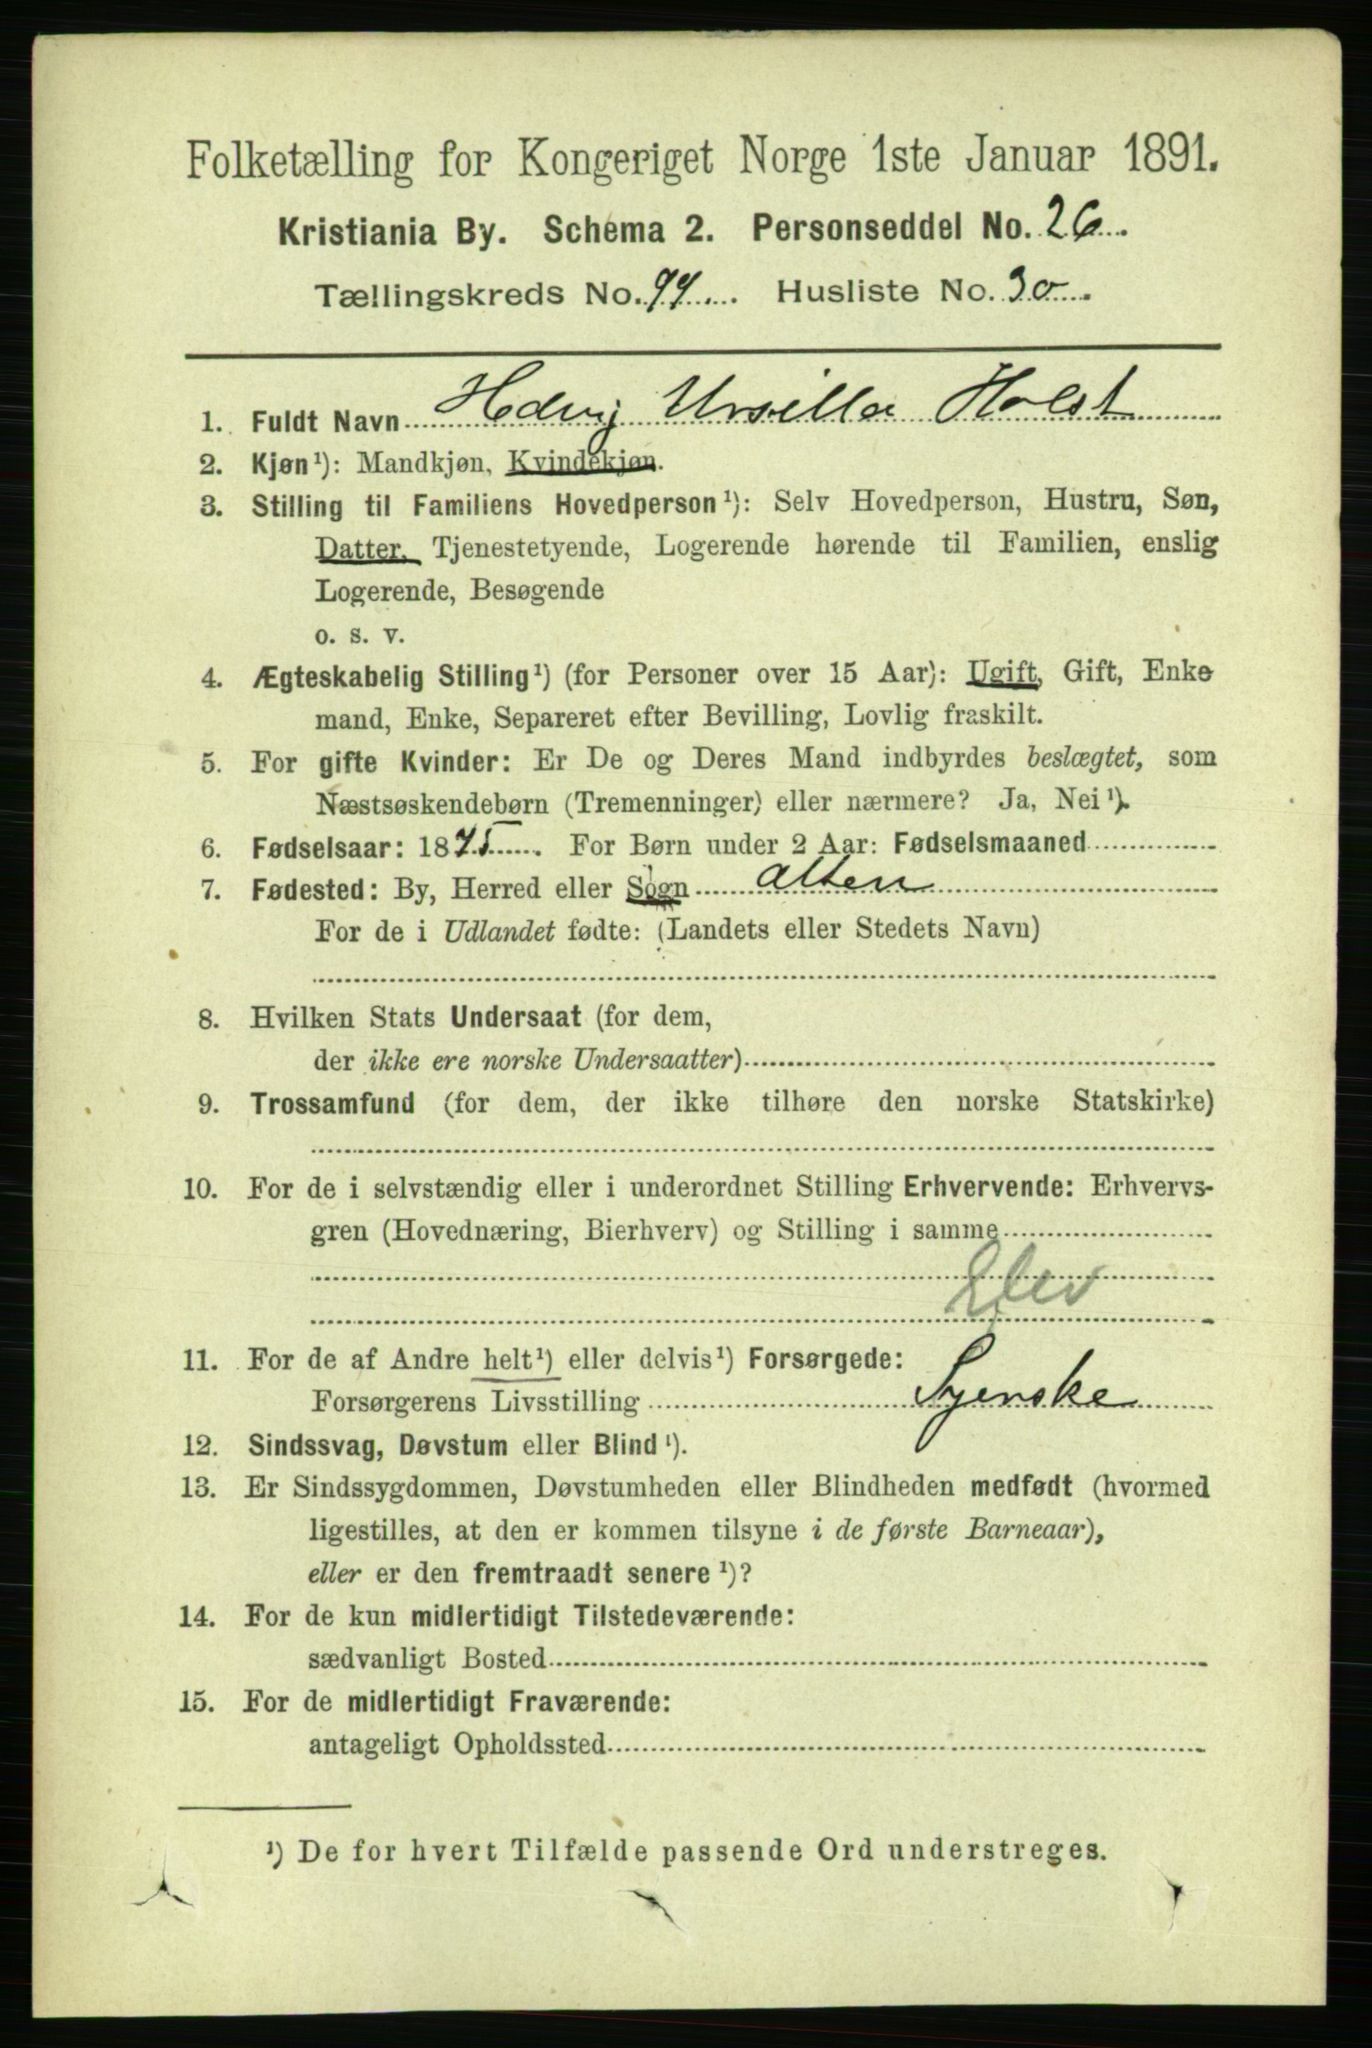 Folketælling for Kongeriget Norge 1ste Januar 1891.
Kristiania By. Schema 2. Personseddel No. 26
Tællingskreds No. 94 Husliste No. 30
1. Fuldt Navn Hedvig Ursilla Holst
2. Kjøn¹): Mandkjøn, Kvindekjøn.
3. Stilling til Familiens Hovedperson¹): Selv Hovedperson, Hustru, Søn,
Datter, Tjenestetyende, Logerende hørende til Familien, enslig
Logerende, Besøgende
o. s. v.
4. Ægteskabelig Stilling¹) (for Personer over 15 Aar): Ugift, Gift, Enke
mand, Enke, Separeret efter Bevilling, Lovlig fraskilt.
5. For gifte Kvinder: Er De og Deres Mand indbyrdes beslægtet, som
Næstsøskendebørn (Tremenninger) eller nærmere? Ja, Nei¹).
6. Fødselsaar: 1875. For Børn under 2 Aar: Fødselsmaaned
7. Fødested: By, Herred eller Sogn Alten
For de i Udlandet fødte: (Landets eller Stedets Navn)
8. Hvilken Stats Undersaat (for dem,
der ikke ere norske Undersaatter)
9. Trossamfund (for dem, der ikke tilhøre den norske Statskirke)
10. For de i selvstændig eller i underordnet Stilling Erhvervende: Erhvervs-
gren (Hovednæring, Bierhverv) og Stilling i samme
Elev
11. For de af Andre helt¹) eller delvis¹) Forsørgede:
Forsørgerens Livsstilling Syerske
12. Sindssvag, Døvstum eller Blind¹).
13. Er Sindssygdommen, Døvstumheden eller Blindheden medfødt (hvormed
ligestilles, at den er kommen tilsyne i de første Barneaar),
eller er den fremtraadt senere¹)?
14. For de kun midlertidigt Tilstedeværende:
sædvanligt Bosted
15. For de midlertidigt Fraværende:
antageligt Opholdssted
¹) De for hvert Tilfælde passende Ord understreges.